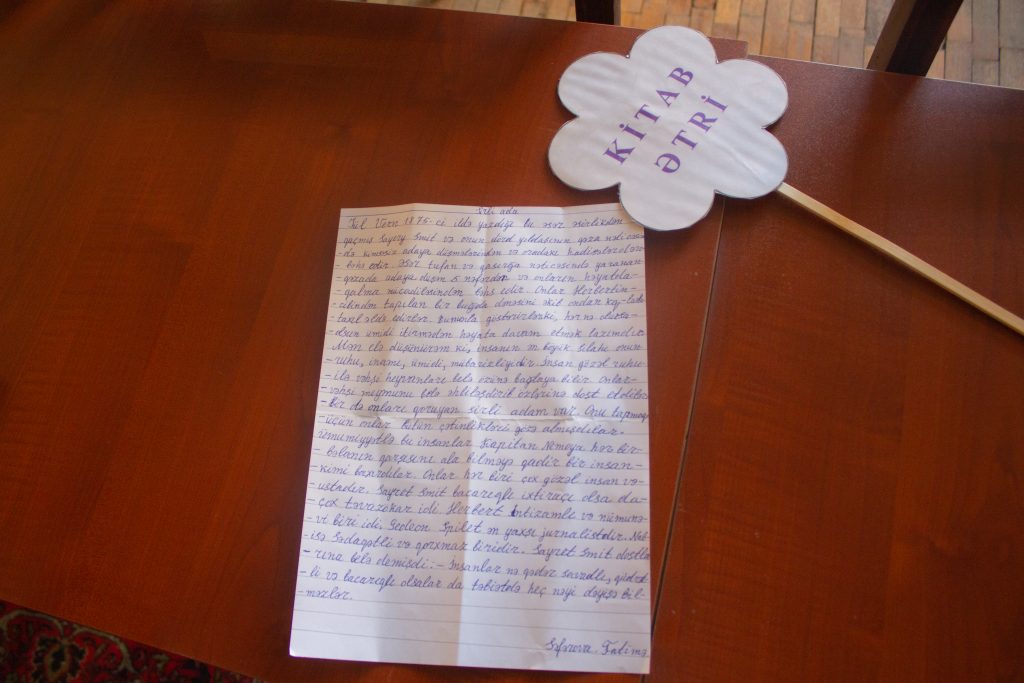 KİTAB
ƏTRİ
Sirli ada
Jül Vern 1875-ci ildə yazdığı bu əsər əsirlikdən
qaçmış Sayres Smit və onun dörd yoldaşının qəza
də kimsəsiz adaya düşmələrindən və oradakı hadisələrdən
bəhs edir. Əsər tufan və qasırğa nəticəsində yaranan
qəzada adaya düşən 5 nəfərdən və onların həyatda-
qalma mücadiləsindən bəhs edir. Onlar Herbertin-
cibindən tapılan bir buğda dənəsini əkib ondan
taxıl əldə edirlər. Bununla göstərirlərki, hər nə olursa-
olsun ümidi itirmədən həyata davam etmək lazımdır.
Mən elə düşünürəm ki, insanın ən böyük silahı onun
ruhu, inamı, ümidi, mübarizliyidir. İnsan gözəl ruhu-
ilə vəhşi heyvanları belə özünə bağlaya bilir. Onlar-
vəhşi meymunu belə əhliləşdirib özlərinə dost etdilər.
Bir də onları qoruyan sirli adam var. Onu tapmaq
üçün onlar bütün çətinlikləri gözə almışdılar.
Ümumiyyətlə bu insanlar Kapitan Nemoya hər bir-
bəlanın qarşısını ala bilməyə qadir bir insan-
kimi baxırdılar. Onlar hər biri çox gözəl insan və-
ustadır. Sayres Smit bacarıqlı ixtiraçı olsa da-
çox təvazökar idi. Herbert intizamlı və nümunə-
vi biri idi. Gedeon Spilet ən yaxşı jurnalistdir. Neb-
isə sədaqətli və qorxmaz biridir. Sayres Smit dostla
rına belə demişdi: - İnsanlar nə qədər savadlı, qüdrət
li və bacarıqlı olsalar da təbiətdə heç nəyi dəyişə bil-
məzlər.
Səfərova Fatimə